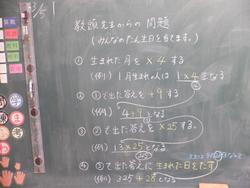 3/5
教頭先生からの問題
(みんなのたん生日を当てます。)
① 生まれた月を×4する
(例) 1月生まれの人は 1×4となる
② ①で出た答えを+9する
(例) 4+9となる
③ ②で出た答えを×25する。
(例) 13×25となる
325
④ ③で出た答に生まれた日をたす
(例) 325+28となる